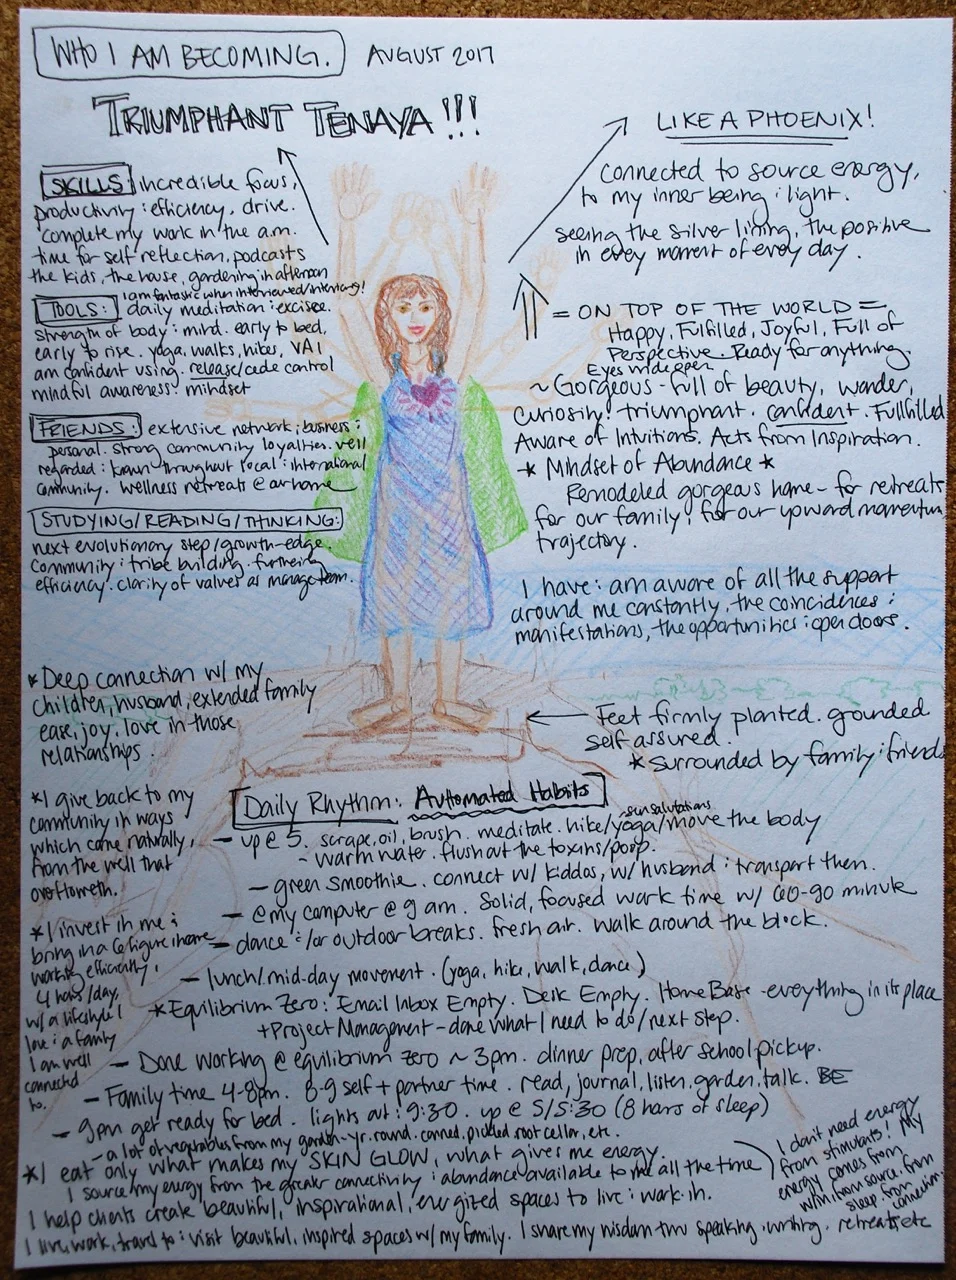 WHO I AM BECOMING. AUGUST 2017
TRIUMPHANT TENAYA!!!
LIKE A PHOENIX!
connected to source energy,
to my inner being & light.
seeing the silver lining, the positive
in every moment of every day.
SKILLS: incredible focus,
productivity & efficiency, drive.
complete my work in the a.m.
time for self-reflection, podcasts
the kids, the house, gardening in afternoon
I am fantastic when interviewed/interviewing!
TOOLS: daily meditation & excise.
strength of body & mind. early to bed,
early to rise. yoga, walks, hikes, VAI
am confident using release/cede control
mindful awareness & mindset
FRIENDS: extensive network & business &
personal. strong community loyalties. well
regarded & known throughout local & international
community. wellness retreats @ our home
STUDYING/READING/THINKING:
next evolutionary step/growth-edge.
community & tribe building. furthering
efficiency. clarity of values as manage team.
= ON TOP OF THE WORLD =
Happy, Fulfilled, Joyful, Full of
Perspective. Ready for anything.
Eyes wide open
~ Gorgeous - full of beauty, wonder,
curiosity! triumphant. confident. Fulfilled
Aware of Intuitions. Acts from Inspiration.
* Mindset of Abundance *
Remodeled gorgeous home - for retreats
for our family & for our upward momentum
trajectory.
I have & am aware of all the support
around me constantly, the coincidences &
manifestations, the opportunities & open doors.
* Deep connection w/ my
children, husband, extended family
ease, joy, love in those
relationships.
Feet firmly planted. grounded
self assured.
* surrounded by family & friends
* I give back to my
community in ways
which come naturally,
from the well that
overfloweth.
* I invest in me &
bring in a 6 figure income
working efficiently,
4 hours/day,
w/ a lifestyle I
love & a family
I am well
connected
to.
Daily Rhythm: Automated Habits
- up @ 5. scrape, oil, brush. meditate. hike/yoga/move the body
sun salutations
- warm water. flush out the toxins/poop.
- green smoothie. connect w/ kiddos, w/ husband & transport them.
- @ my computer @ 9 am. Solid, focused work time w/ 60-90 minute
- dance &/or outdoor breaks. fresh air. walk around the block.
- lunch/mid-day movement. (yoga, hike, walk, dance)
* Equilibrium Zero: Email Inbox Empty. Desk Empty. Home Base - everything in its place
+ Project Management - done what I need to do/next step.
- Done working @ equilibrium zero ~ 3pm. dinner prep, after school pickup.
- Family time 4-8pm. 8-9 self + partner time. read, journal, listen, garden, talk. BE
- 9pm get ready for bed. lights out: 9:30. up @ 5/5:30 (8 hours of sleep)
- a lot of vegetables from my garden - yr. round. canned, pickled, root cellar, etc.
* I eat only what makes my SKIN GLOW, what gives me energy.
I source my energy from the greater connectivity & abundance available to me all the time
I don't need energy
from stimulants! My
energy comes from
within, from source, from
sleep, from
connection.
I help clients create beautiful, inspirational, energized spaces to live & work in.
I live, work, travel to & visit beautiful, inspired spaces w/ my family. I share my wisdom thru speaking, writing, retreats, etc